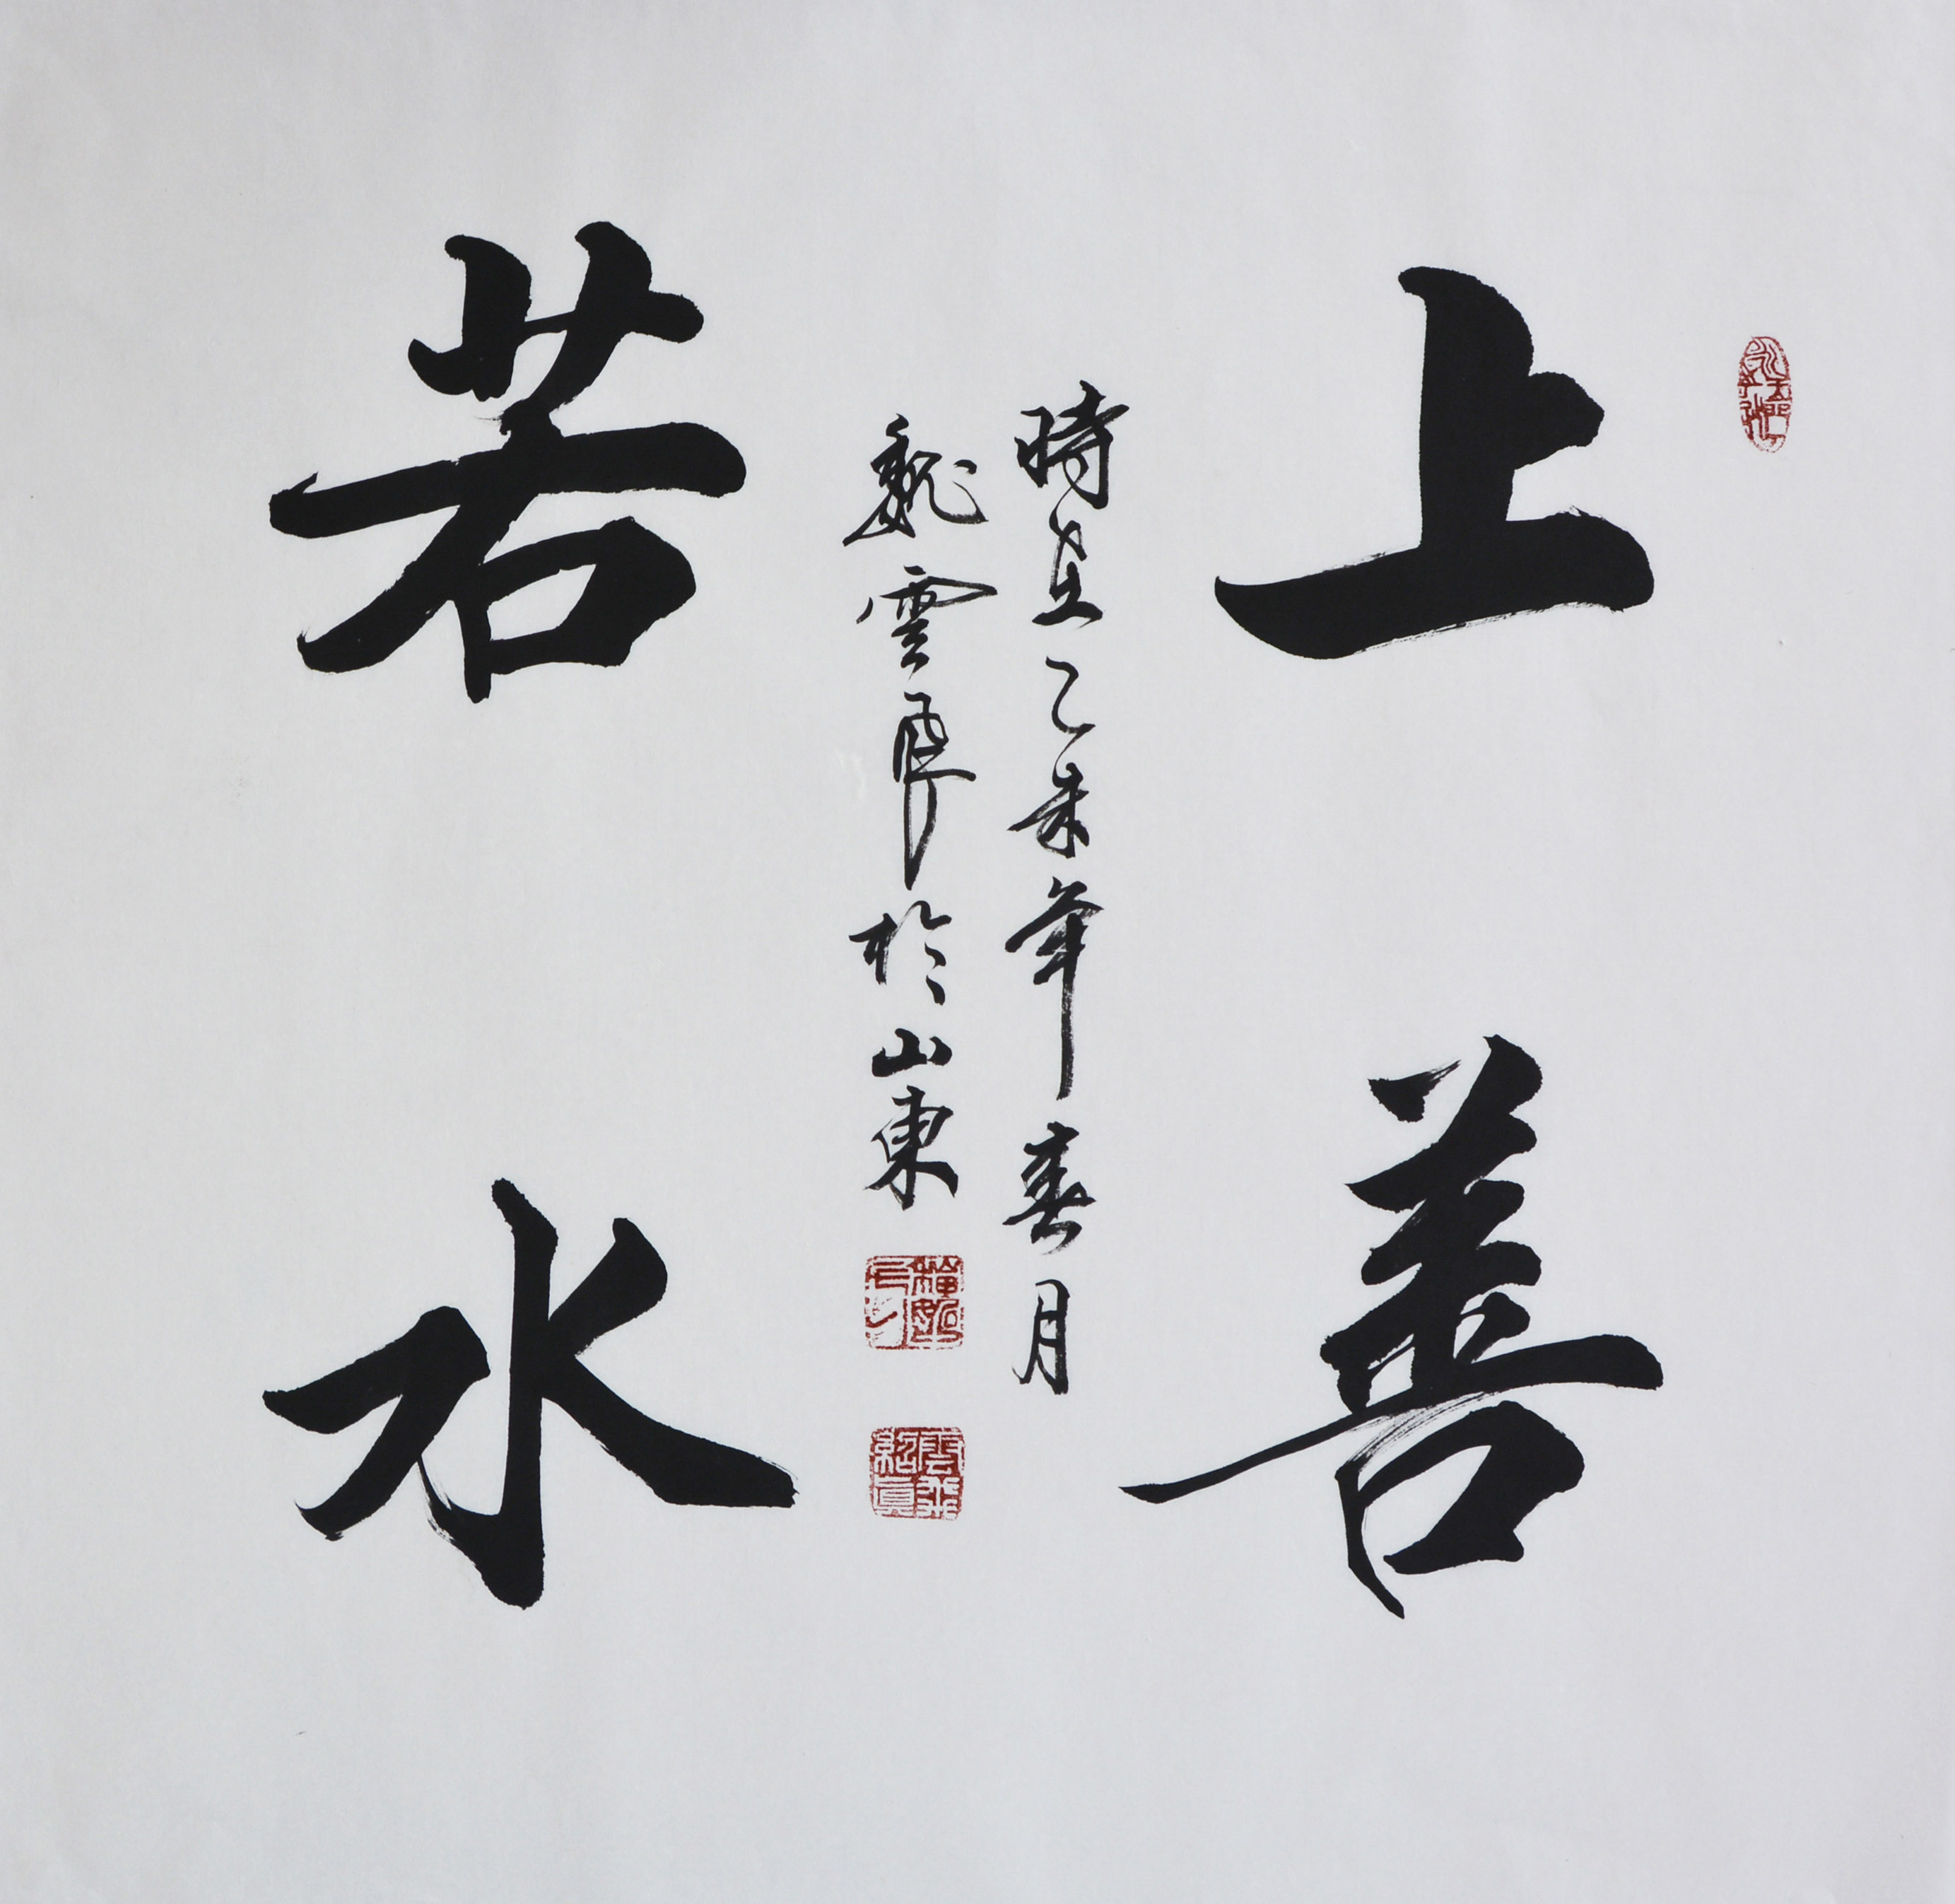 上善
若水
時在乙未年春月
魏雲飛於山東